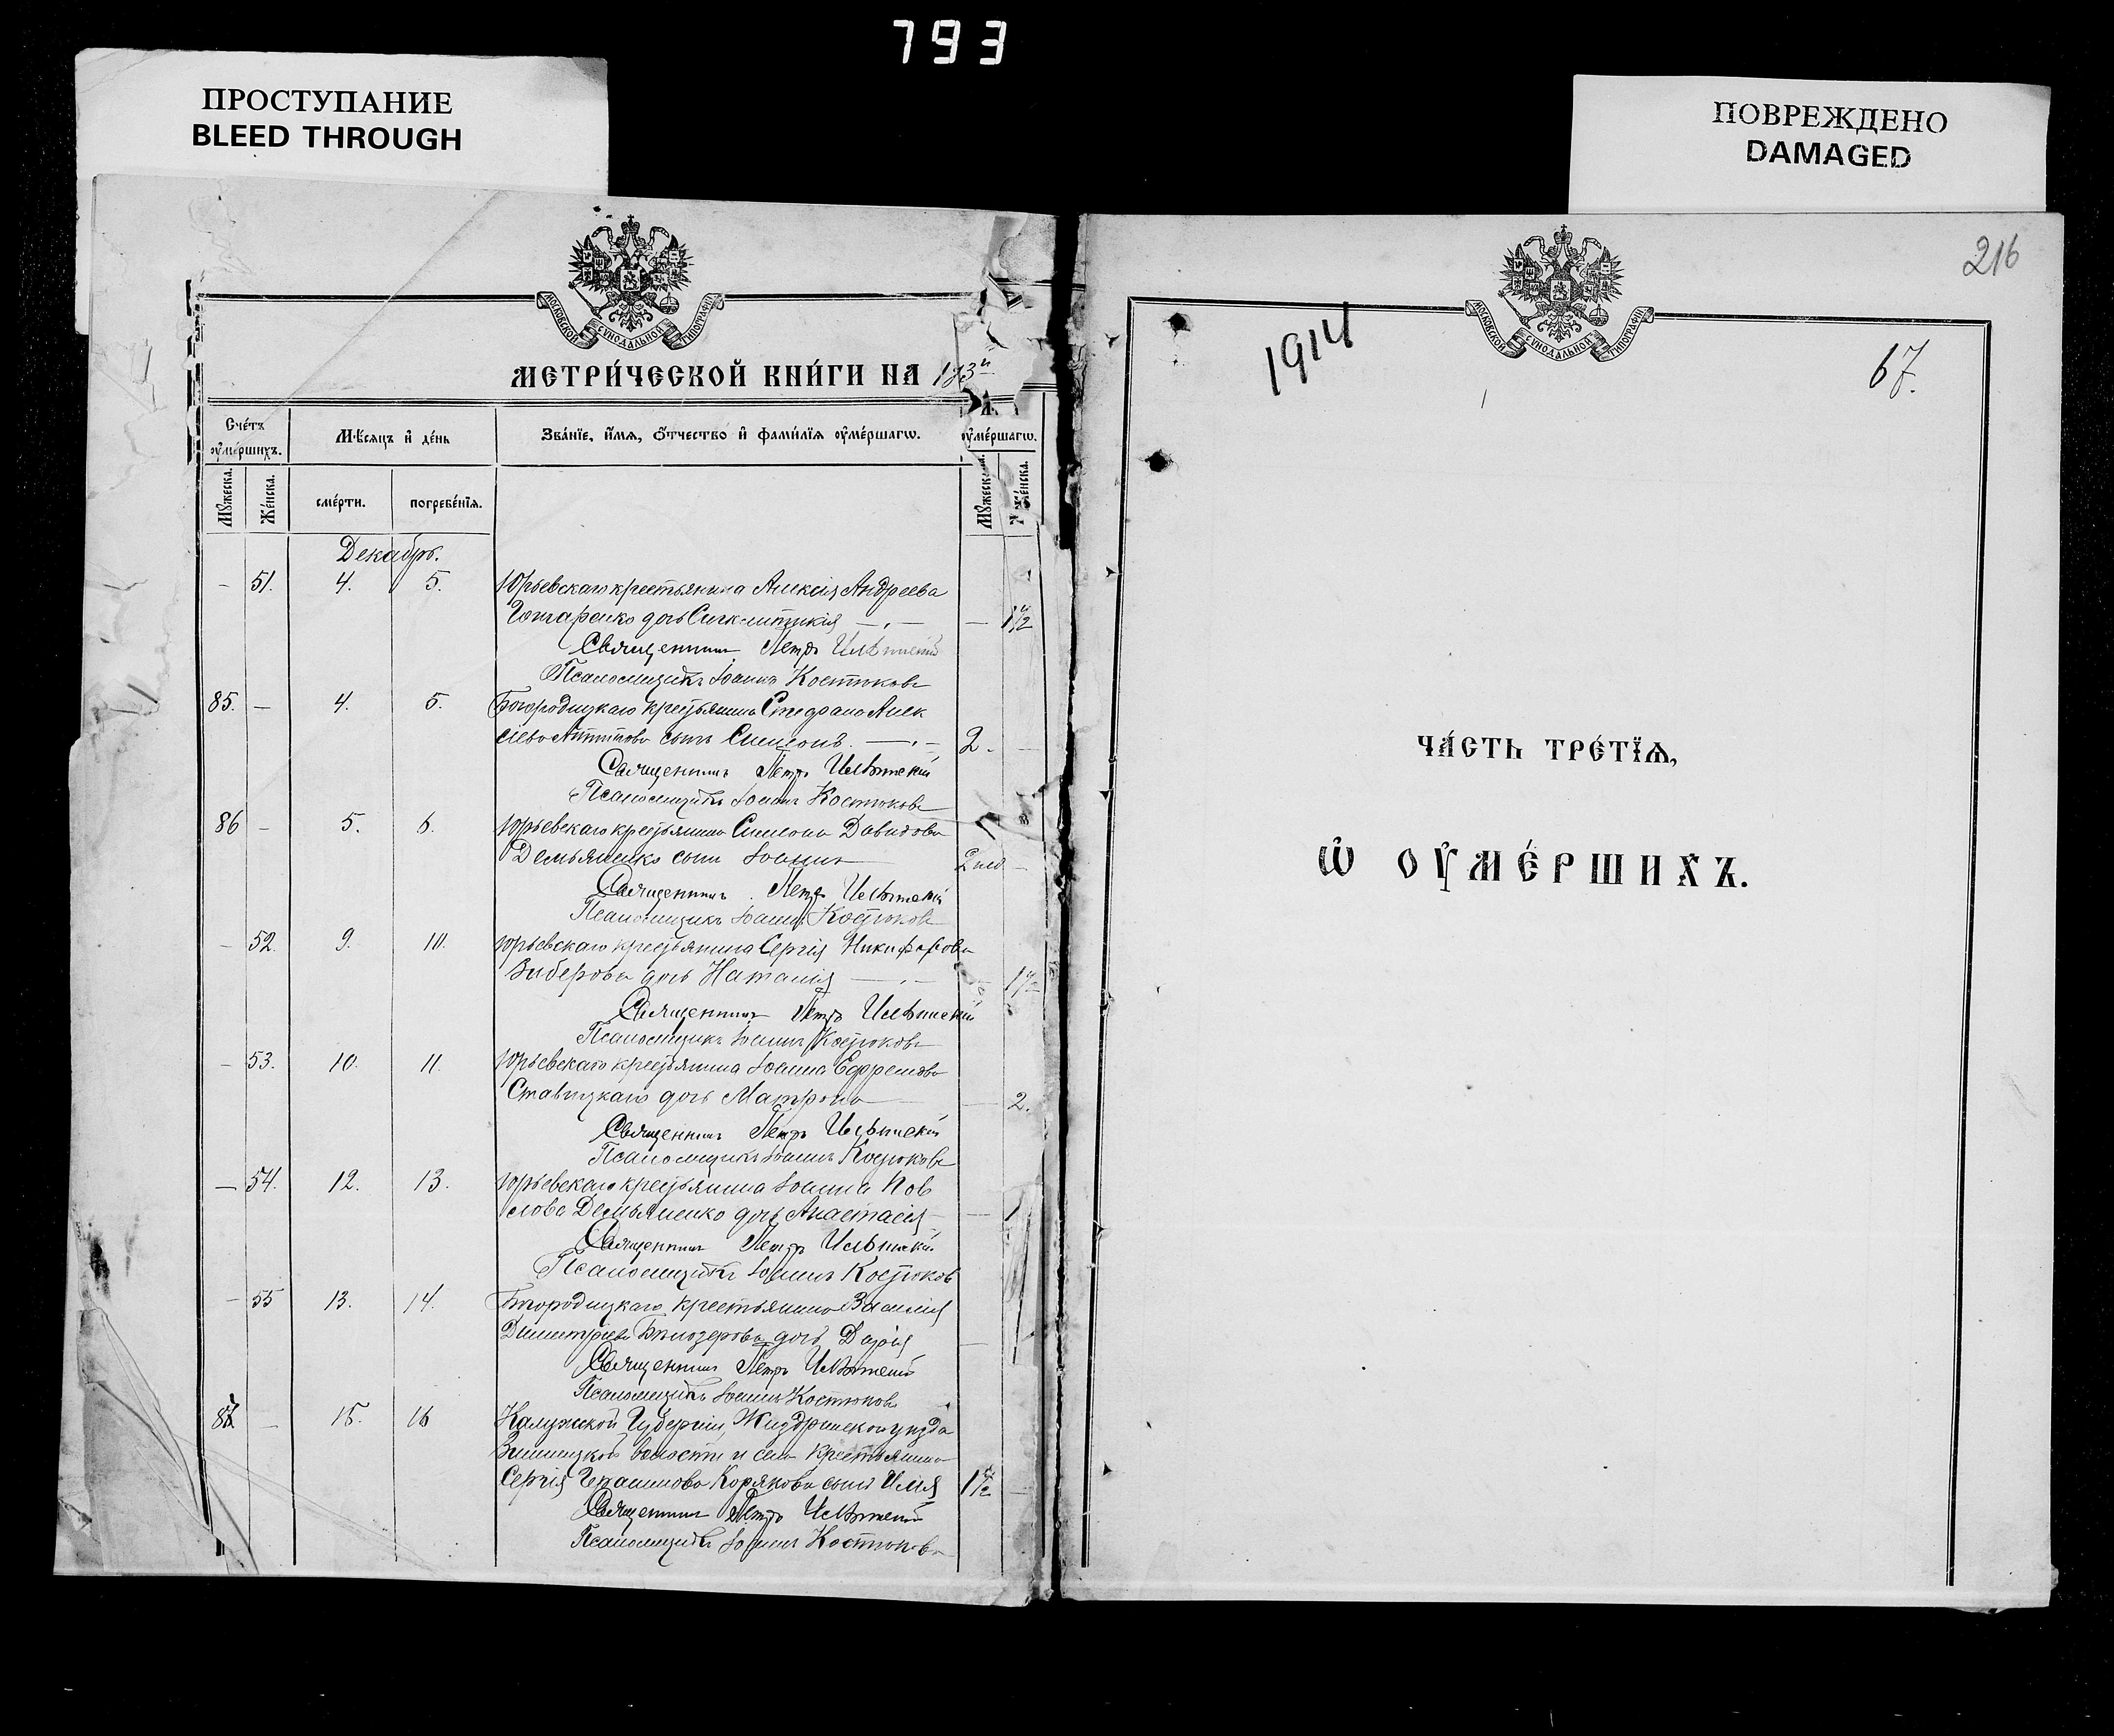 793
ПРОСТУПАНИЕ
BLEED THROUGH
ПОВРЕЖДЕНО
DAMAGED
МОСКОВСКОЙ СѴНОДАЛЬНОЙ ТИПОГРАФІИ
МЕТРИ́ЧЕСКОЙ КНИ́ГИ НА
Сче́тъ ᲂу҆ме́ршихъ.
Мѣ́сяцъ и҆ де́нь
Зва́нїе, и҆́мѧ, ѻ҆́тчество и҆ фами́лїѧ ᲂу҆ме́ршагѡ.
ᲂу҆ме́ршагѡ.
Мꙋжеска.
Же́нска.
сме́рти.
погребе́нїѧ.
Мꙋжеска.
Же́нска.
Декабрь.
- 51. 4. 5. Юрьевскаго крестьянина Алексія Андреева
Гонтаренко дочь Синклитикія — 1 1/2
Священникъ Петръ Ильинскій
Псаломщикъ Іоаннъ Костюковъ
85. - 4. 5. Богородицкаго крестьянина Стефана Алек
сіева сынъ Симеонъ. 2.
Священникъ Петръ Ильинскій
Псаломщикъ Іоаннъ Костюковъ
86 - 5. 6. Юрьевскаго крестьянина Симеона Давидова
Демьяненко сынъ Іоаннъ
Священникъ Петръ Ильинскій
Псаломщикъ Іоаннъ Костюковъ
- 52. 9. 10. Юрьевскаго крестьянина Сергія Никифорова
Зиберова дочь Наталія
Священникъ Петръ Ильинскій
Псаломщикъ Іоаннъ Костюковъ
- 53. 10. 11. Юрьевскаго крестьянина Іоанна Ефремова
Ставицкаго дочь Матрона — 2.
Священникъ Петръ Ильинскій
Псаломщикъ Іоаннъ Костюковъ
- 54. 12. 13. Юрьевскаго крестьянина Іоанна Пав
лова Демьяненко дочь Анастасія — 1
Священникъ Петръ Ильинскій
Псаломщикъ Іоаннъ Костюковъ
- 55 13. 14. Богородицкаго крестьянина Василія
Димитріева Бѣлозерова дочь Дарія
Священникъ Петръ Ильинскій
Псаломщикъ Іоаннъ Костюковъ
87 - 15. 16 Калужской Губерніи, Жиздринскаго уѣзда
волости и села крестьянина
Сергія Герасимова Корякова сынъ Илія 1 1/2
Священникъ Петръ Ильинскій
Псаломщикъ Іоаннъ Костюковъ
216
МОСКОВСКОЙ СѴНОДАЛЬНОЙ ТИПОГРАФІИ
1914
67.
ЧА́СТЬ ТРЕ́ТЇѦ,
Ѡ҆ ОУ҆МЕ́РШИХЪ.